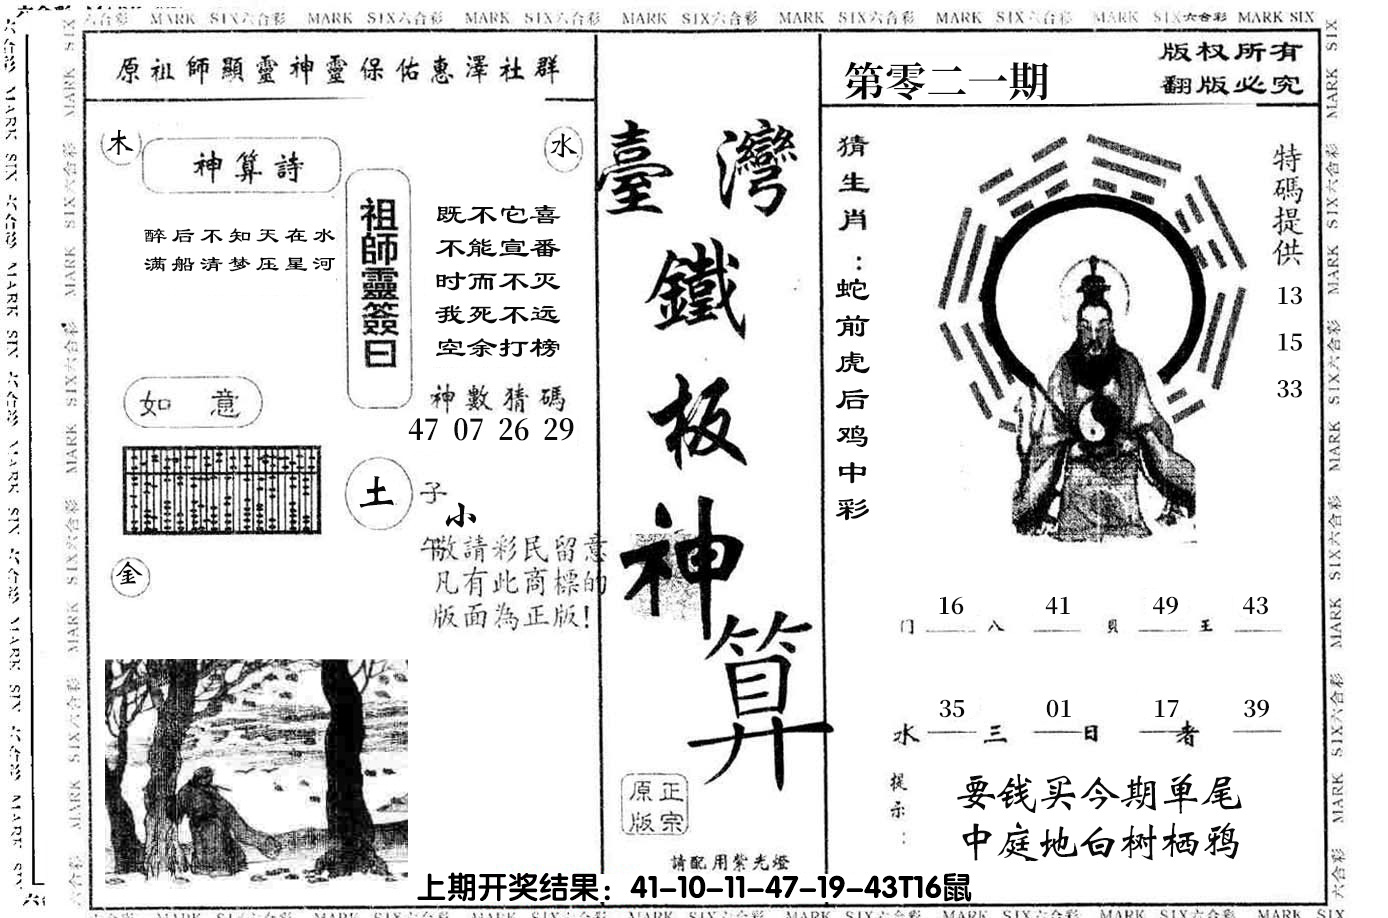 MARK SIX六合彩 MARK SIX六合彩 MARK SIX六合彩 MARK SIX六合彩 MARK SIX六合彩 MARK SIX六合彩 MARK SIX六合彩 MARK SIX
原祖師顯靈神靈保佑惠澤社群
木
水
神算詩
醉后不知天在水
满船清梦压星河
祖師靈簽曰
既不它喜
不能宣番
时而不灭
我死不远
空余打榜
神數猜碼
47 07 26 29
如意
土
子
小
午
敬請彩民留意
凡有此商標的
版面為正版!
金
臺灣
鐵
板
神
算
正宗
原版
請配用紫光燈
第零二一期
版权所有
翻版必究
猜生肖:蛇前虎后鸡中彩
特碼提供
13
15
33
16 41 49 43
门 八 貝 王
35 01 17 39
水 三 日 者
提示:
要钱买今期单尾
中庭地白树栖鸦
上期开奖结果：41-10-11-47-19-43T16鼠